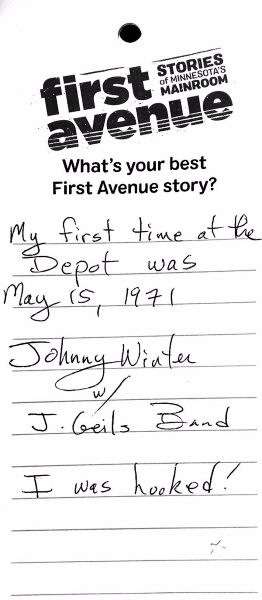 first
avenue
STORIES
of MINNESOTA'S
MAINROOM
What's your best
First Avenue story?
My first time at the
Depot was
May 15, 1971
Johnny Winter
w/
J. Geils Band
I was hooked!